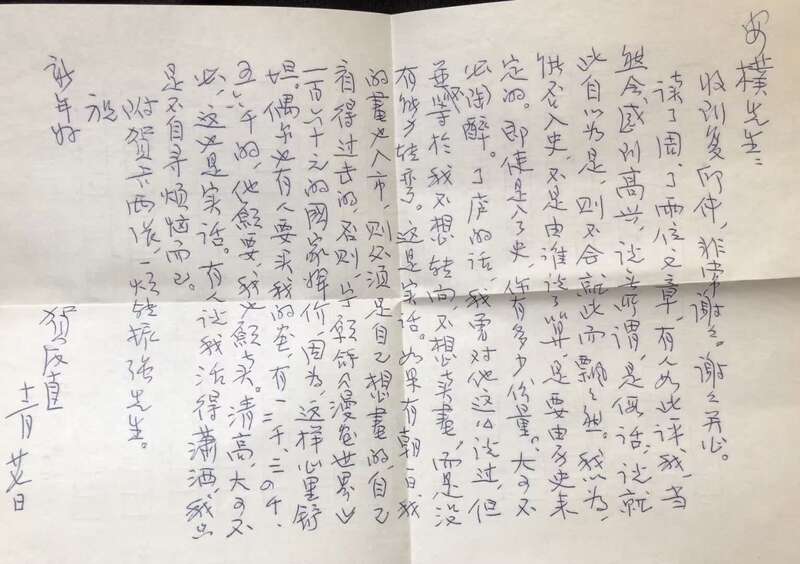 安樸先生：
收到复印件，非常谢谢。谢谢关心。
读了周、丁两位文章，有人如此评我，当
然会感到高兴，说无所谓，是假话，说就
此自以为是，则不会就此而飘飘然。我以为，
能否入史，不是由谁说了算，是要由历史来
定的。即使是入了史，你有多少份量？大可不
必陶醉。丁府的话，我曾对他这么说过，但
并不等於我不想转向，不想卖画，而是没
有能力转弯。这是实话。如果有朝一日，我
的畫也入市，则必须是自己想畫的，自己
看得过去的，否则，宁愿舒〇漫卷世界
一百六十元的國家稿价，因为，这样心里舒
坦。偶尔也有人要买我的画，有一二千、三四千、
五六千的，他願要，我也願卖。清高，大可不
必，这也是实话。有人说我活得瀟洒，我只
是不自寻烦恼而已。
附贺卡两张，一烦转振强先生。
祝
新年好
贺友直
十二月廿七日